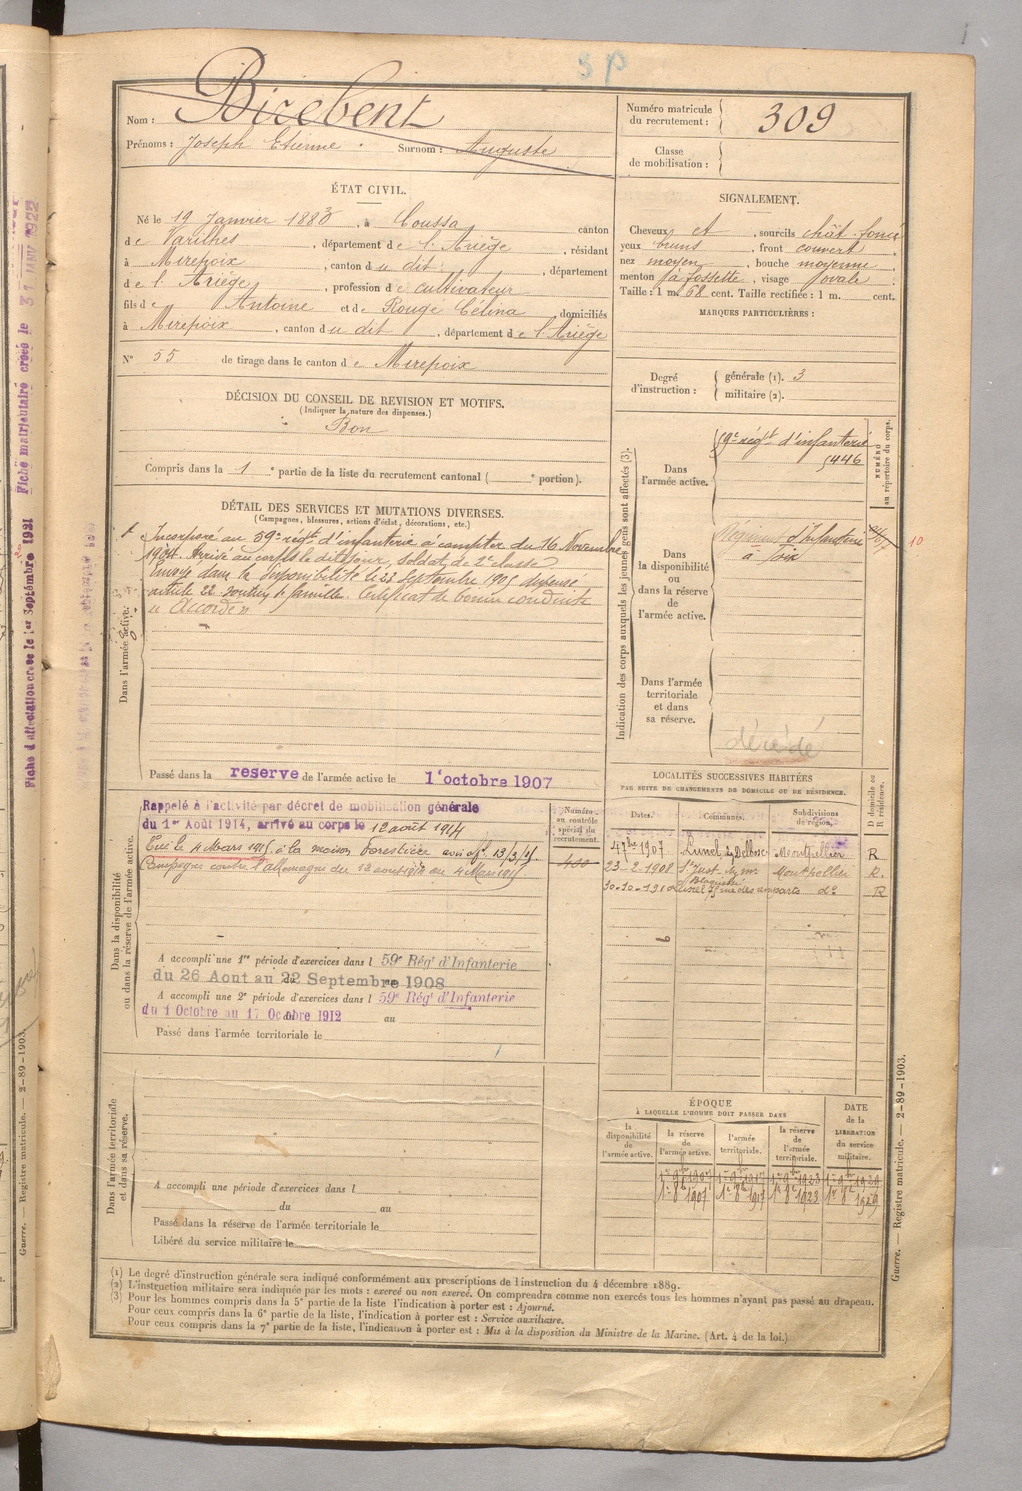 S P
Nom : Bicebent
Prénoms : Joseph Etienne Surnom : Auguste
Numéro matricule du recrutement : 309
Classe de mobilisation :
ÉTAT CIVIL.
Né le 19 Janvier 1883, à Coussa canton
de Varilhes, département de l'Ariège, résidant
à Mirepoix, canton du dit, département
de l'Ariège, profession de cultivateur
fils de Antoine et de Rouge Célina domiciliés
à Mirepoix, canton du dit, département de l'Ariège
N° 55 de tirage dans le canton de Mirepoix
SIGNALEMENT.
Cheveux et, sourcils chât. foncé
yeux bruns, front couvert,
nez moyen, bouche moyenne,
menton à fossette, visage ovale.
Taille : 1 m. 68 cent. Taille rectifiée : 1 m. cent.
MARQUES PARTICULIÈRES :
Degré d'instruction : générale (1). 3
militaire (2).
DÉCISION DU CONSEIL DE REVISION ET MOTIFS.
(Indiquer la nature des dispenses.)
Bon
Compris dans la 1e partie de la liste du recrutement cantonal ( e portion).
DÉTAIL DES SERVICES ET MUTATIONS DIVERSES.
(Campagnes, blessures, actions d'éclat, décorations, etc.)
Dans l'armée active.
Incorporé au 59e régt d'infanterie à compter du 16 Novembre
1904. Arrivé au corps le dit jour, soldat de 2e classe
Envoyé dans la disponibilité le 23 Septembre 1905 dispense
article 22 soutien de famille. Certificat de bonne conduite
"Accordé"
Passé dans la reserve de l'armée active le 1er octobre 1907
Indication des corps auxquels les jeunes gens sont affectés (3).
NUMÉRO au répertoire du corps.
Dans l'armée active.
59e régt d'infanterie
5446
Dans la disponibilité ou dans la réserve de l'armée active.
Régiment d'Infanterie
à Foix
10
Dans l'armée territoriale et dans sa réserve.
décédé
Dans la disponibilité ou dans la réserve de l'armée active.
Rappelé à l'activité par décret de mobilisation générale
du 1er Août 1914, arrivé au corps le 12 août 1914
Tué le 4 Mars 1915 à la maison Forestière avis off. 13/3/15.
Campagne contre l'allemagne du 12 août 1914 au 4 Mars 1915
Numéro au contrôle spécial du recrutement.
A accompli une 1re période d'exercices dans l 59e Régt d'Infanterie
du 26 Aout au 22 Septembre 1908
A accompli une 2e période d'exercices dans l 59e Régt d'Infanterie
du 1 Octobre au 17 Octobre 1912 au
Passé dans l'armée territoriale le
LOCALITÉS SUCCESSIVES HABITÉES
PAR SUITE DE CHANGEMENTS DE DOMICILE OU DE RÉSIDENCE.
Dates. Communes. Subdivisions de région. D domicile ou R résidence.
4 7bre 1907 Lunel Montpellier R
23-2-1908 St Just Montpellier R.
30-10-1910 Lunel rue des remparts do R
ÉPOQUE
À LAQUELLE L'HOMME DOIT PASSER DANS
la disponibilité de l'armée active.
la réserve de l'armée active.
l'armée territoriale.
la réserve de l'armée territoriale.
DATE de la LIBÉRATION du service militaire.
1er 9bre 1907 1er 9bre 1917 1er 9bre 1923 1er 9bre 1929
1er 8bre 1907 1er 8bre 1917 1er 8bre 1923 1er 8bre 1929
Dans l'armée territoriale et dans sa réserve.
A accompli une période d'exercices dans l
du au
Passé dans la réserve de l'armée territoriale le
Libéré du service militaire le
(1) Le degré d'instruction générale sera indiqué conformément aux prescriptions de l'instruction du 4 décembre 1889.
(2) L'instruction militaire sera indiquée par les mots : exercé ou non exercé. On comprendra comme non exercés tous les hommes n'ayant pas passé au drapeau.
(3) Pour les hommes compris dans la 5e partie de la liste l'indication à porter est : Ajourné.
Pour ceux compris dans la 6e partie de la liste, l'indication à porter est : Service auxiliaire.
Pour ceux compris dans la 7e partie de la liste, l'indication à porter est : Mis à la disposition du Ministre de la Marine. (Art. 4 de la loi.)
Guerre. — Registre matricule. — 2-89-1903.
Guerre. — Registre matricule. — 2-89-1903.
Fiche d'affectation créée le 1er Septembre 1931
Fiche matriculaire créée le 31 JANV 1922